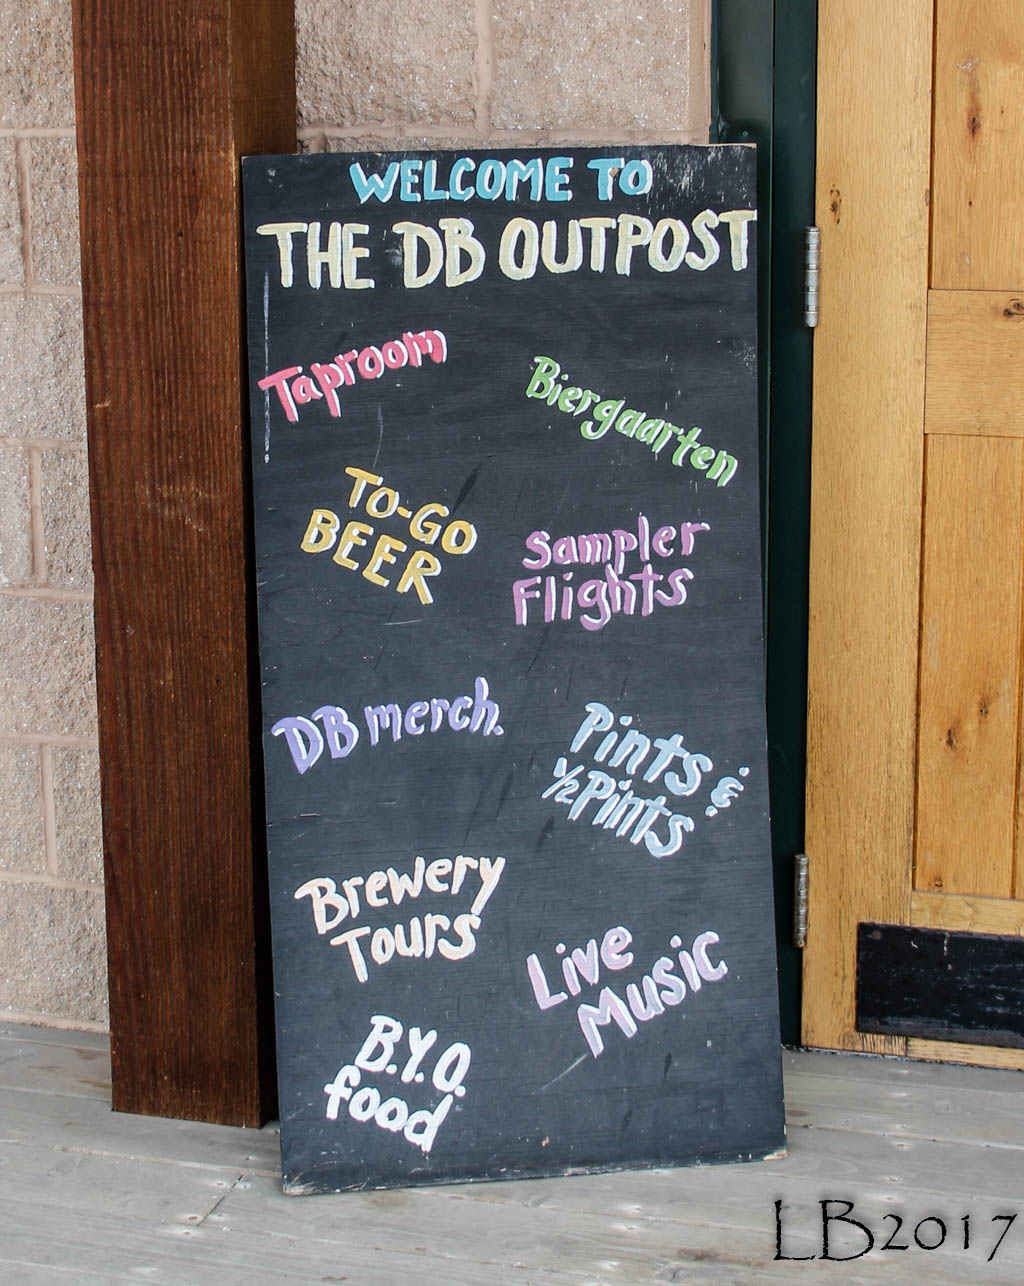 WELCOME TO
THE DB OUTPOST
Taproom
Biergaarten
TO-GO
BEER
Sampler
Flights
DB merch.
Pints &
1/2 Pints
Brewery
Tours
Live
Music
B.Y.O.
food
LB2017